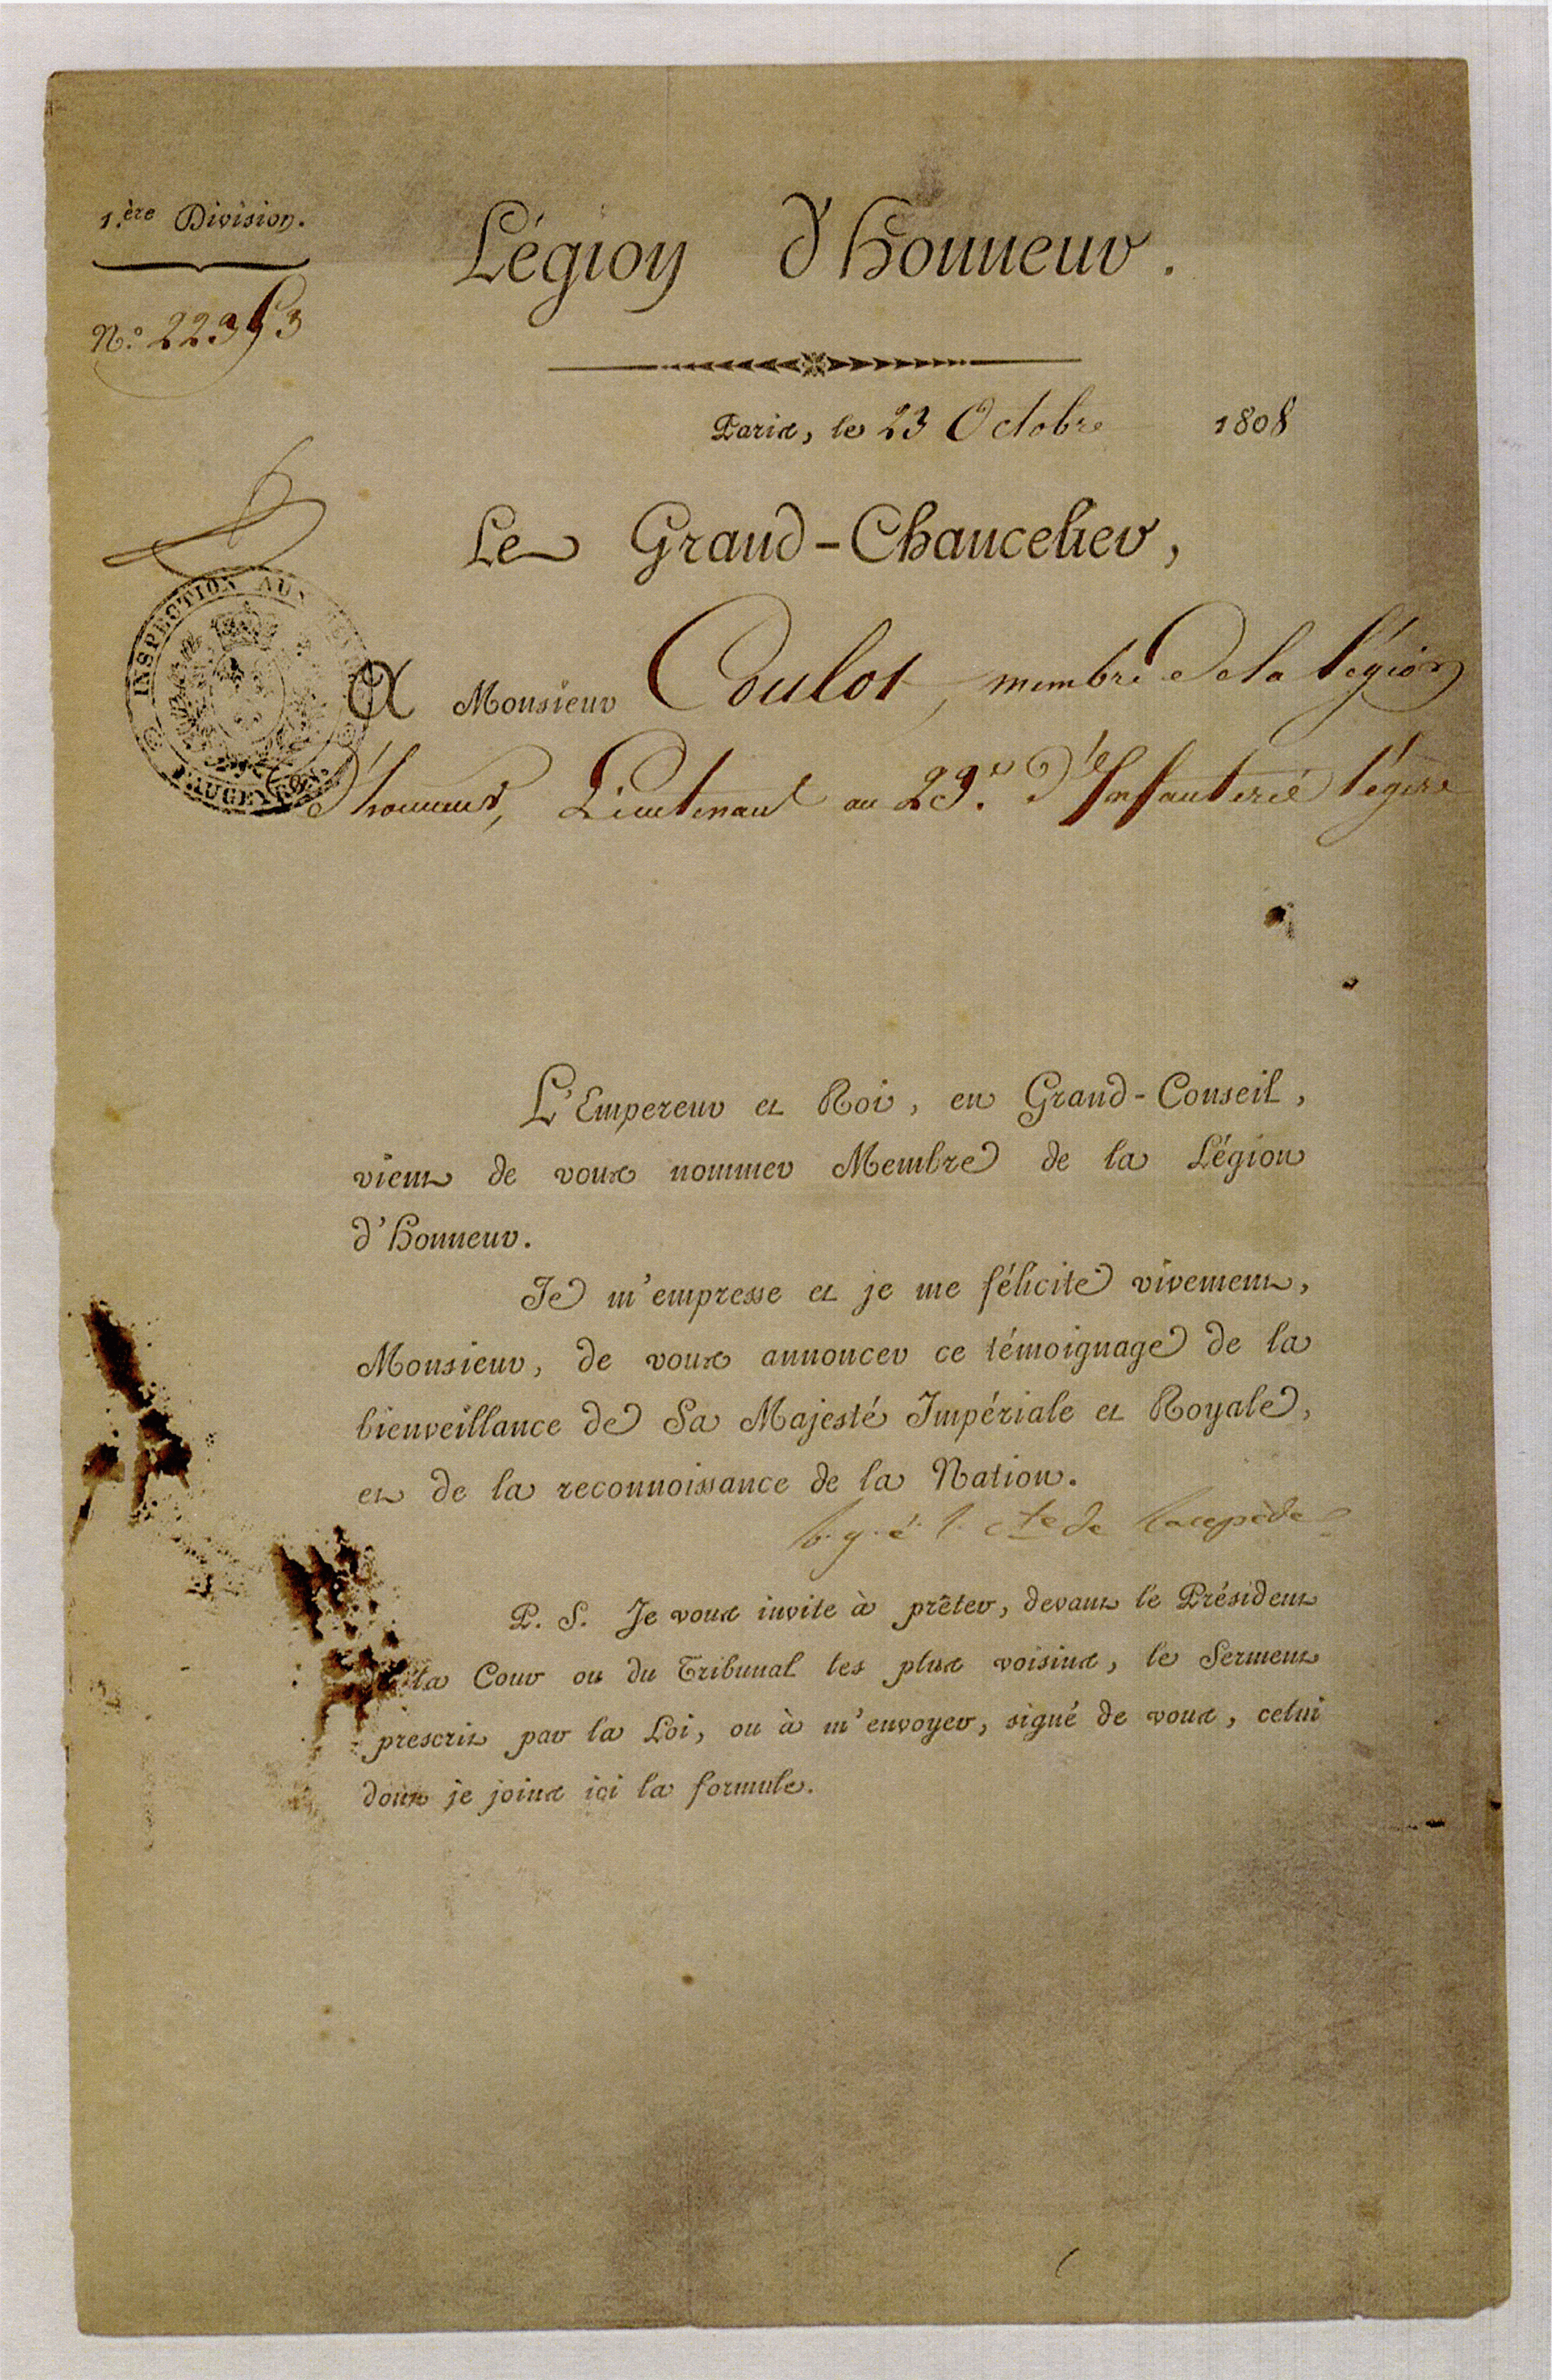 1.ère Division.
Légion d'honneur.
N.º 22353
Paris, le 23 Octobre 1808
Le Grand-Chancelier,
INSPECTION AUX
A Monsieur Coulot, membre de la légion
d'honneur, Lieutenant au 23.e d'Infanterie légère
L'Empereur et Roi, en Grand-Conseil,
vient de vous nommer Membre de la Légion
d'honneur.
Je m'empresse et je me félicite vivement,
Monsieur, de vous annoncer ce témoignage de la
bienveillance de Sa Majesté Impériale et Royale,
et de la reconnoissance de la Nation.
B. G. E. L. Cte de Lacepède
P. S. Je vous invite à prêter, devant le Président
de la Cour ou du Tribunal les plus voisins, le Serment
prescrit par la Loi, ou à m'envoyer, signé de vous, celui
dont je joins ici la formule.